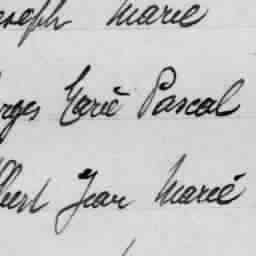 oseph Marie
rges Marie Pascal
bert Jean Marie